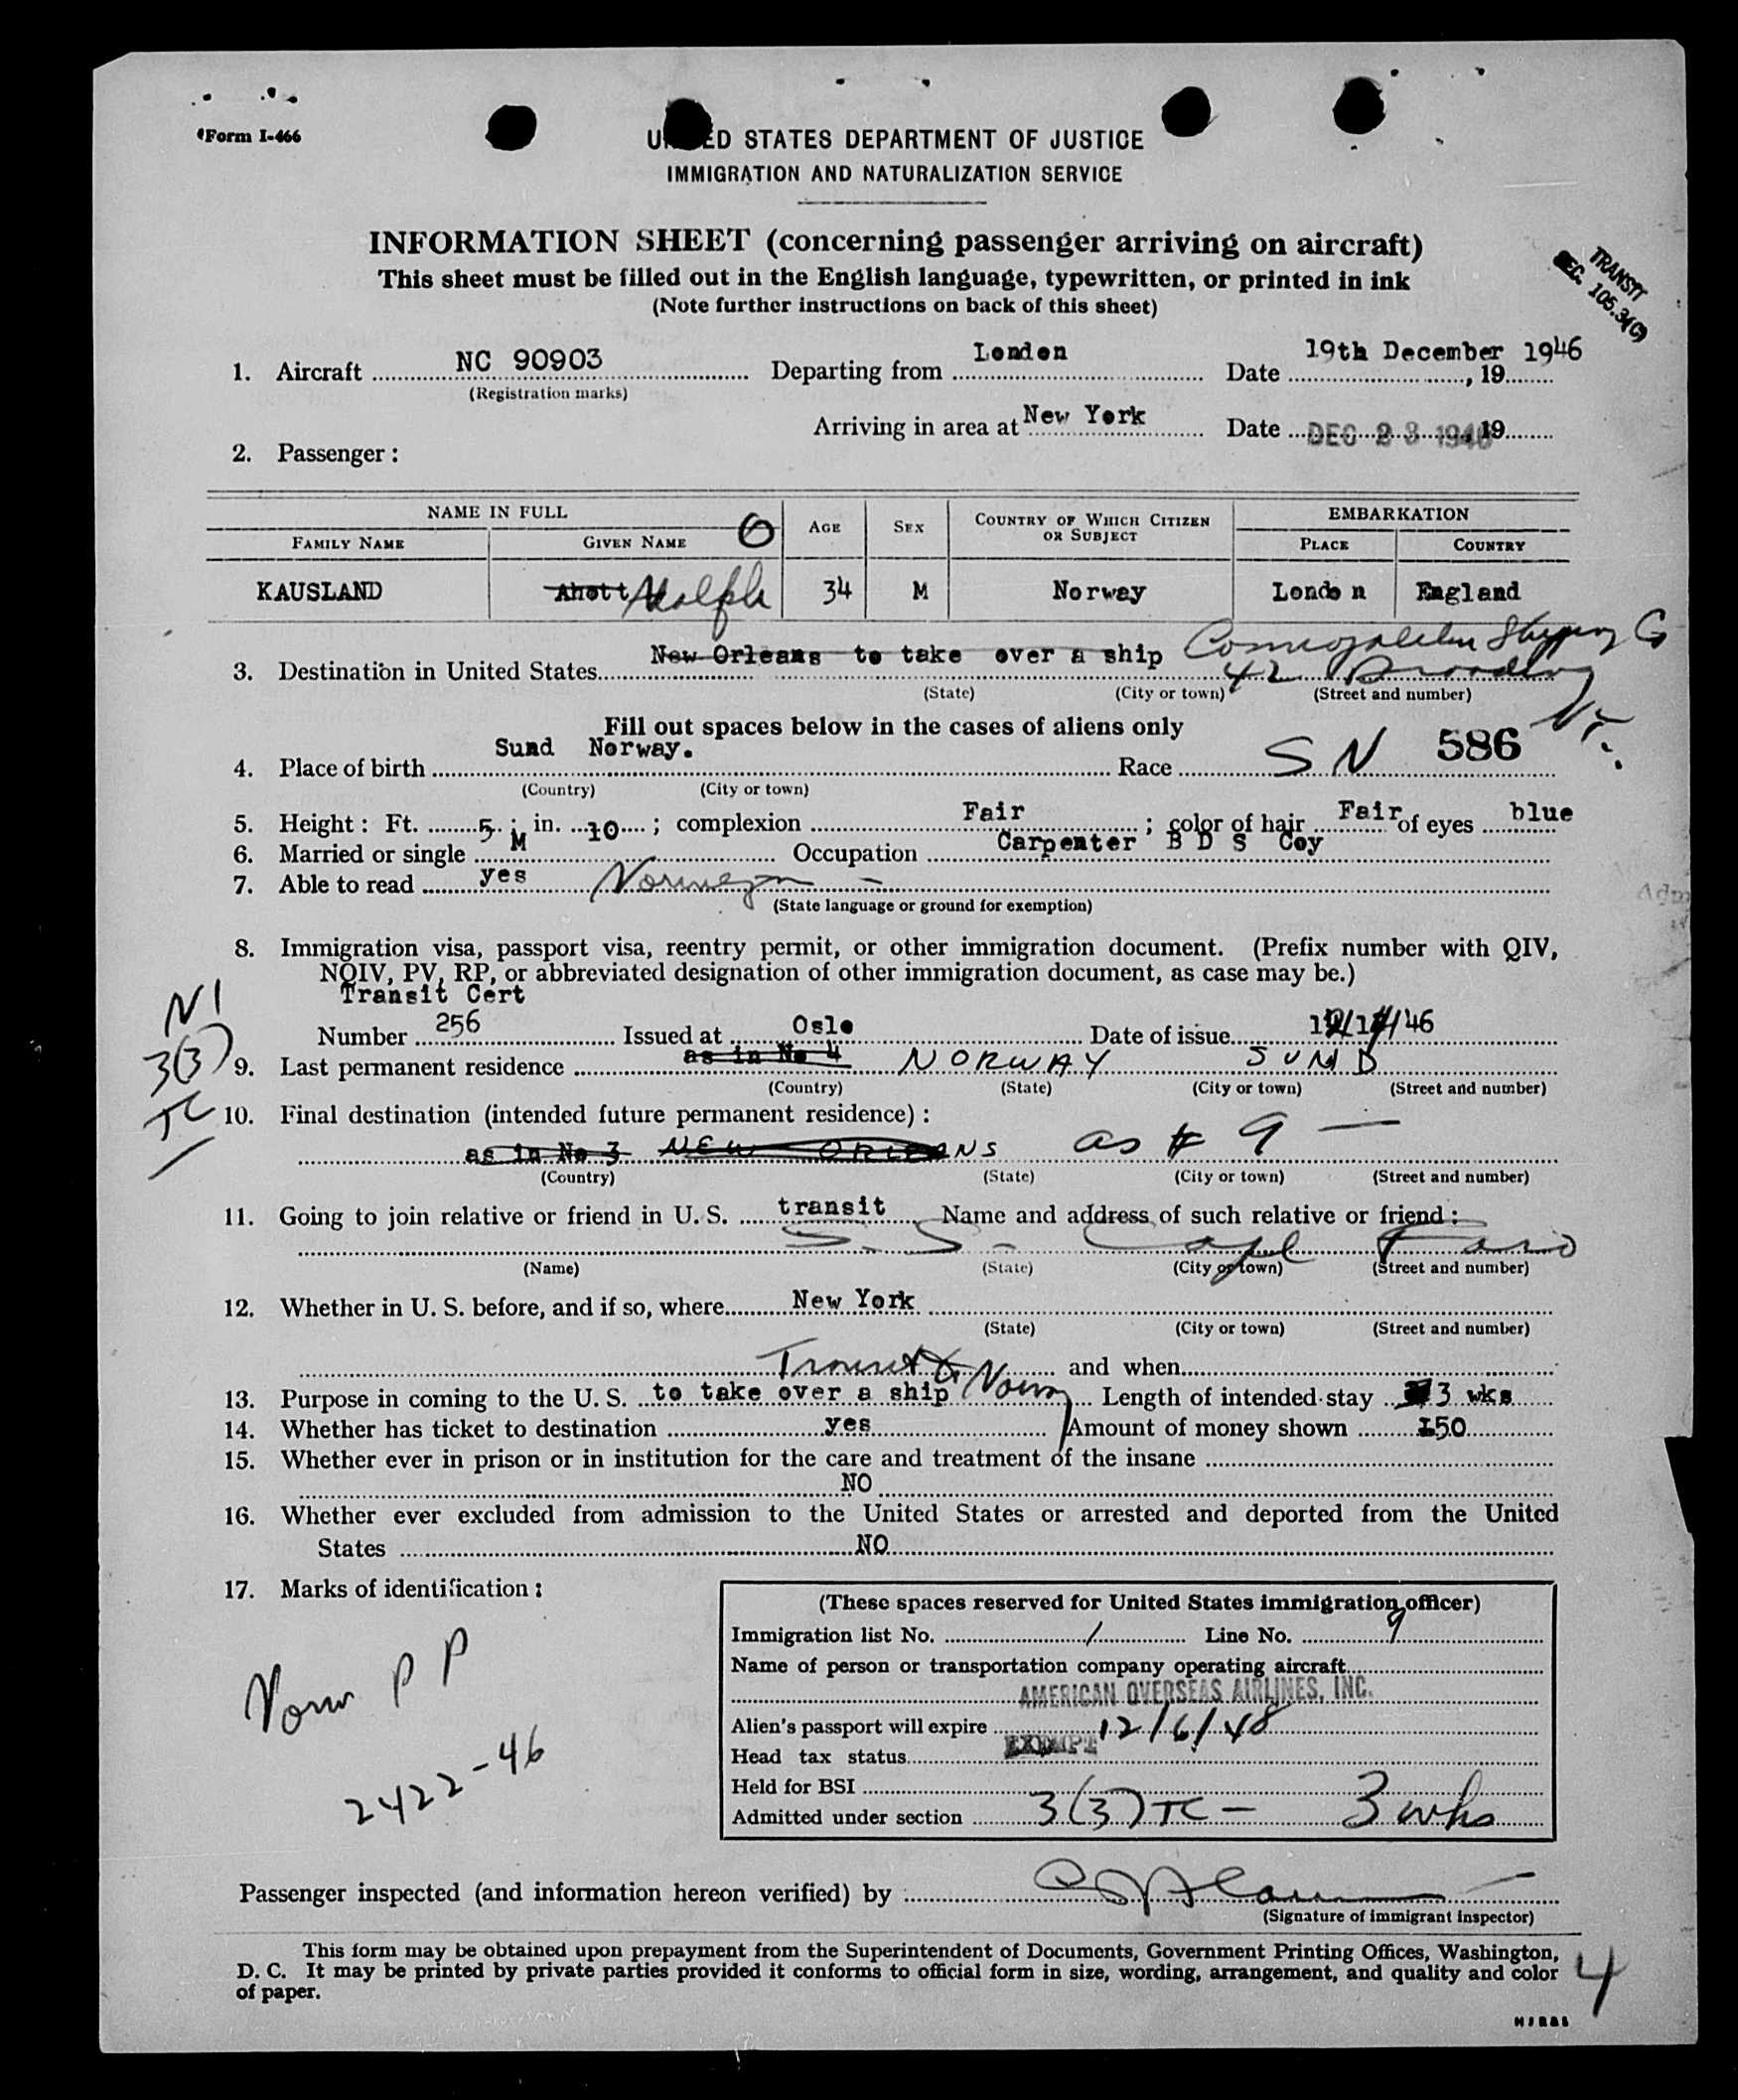 Form I-466
UNITED STATES DEPARTMENT OF JUSTICE
IMMIGRATION AND NATURALIZATION SERVICE
INFORMATION SHEET (concerning passenger arriving on aircraft)
This sheet must be filled out in the English language, typewritten, or printed in ink
(Note further instructions on back of this sheet)
TRANSIT
SEC. 105.3(C)
1. Aircraft NC 90903 Departing from London Date 19th December 1946, 19
(Registration marks)
Arriving in area at New York Date DEC 23 1946, 19
2. Passenger:
NAME IN FULL AGE SEX COUNTRY OF WHICH CITIZEN OR SUBJECT EMBARKATION
FAMILY NAME GIVEN NAME PLACE COUNTRY
KAUSLAND Ahott Adolph 34 M Norway London England
3. Destination in United States New Orleans to take over a ship Cosmopolitan Shipping Co
42 Broadway
(State) (City or town) (Street and number)
N.Y.
Fill out spaces below in the cases of aliens only
4. Place of birth Sund Norway. Race SN 586
(Country) (City or town)
5. Height: Ft. 5; in. 10; complexion Fair; color of hair Fair of eyes blue
6. Married or single M Occupation Carpenter B D S Coy
7. Able to read yes Norwegn -
(State language or ground for exemption)
8. Immigration visa, passport visa, reentry permit, or other immigration document. (Prefix number with QIV,
NQIV, PV, RP, or abbreviated designation of other immigration document, as case may be.)
Transit Cert
Number 256 Issued at Oslo Date of issue /46
N1
3(3)
TC
9. Last permanent residence as in No 4 NORWAY SUND
(Country) (State) (City or town) (Street and number)
10. Final destination (intended future permanent residence):
as in No 3 NEW ORLEANS as # 9 —
(Country) (State) (City or town) (Street and number)
11. Going to join relative or friend in U. S. transit Name and address of such relative or friend:
S. S. - Cape
(Name) (State) (City or town) (Street and number)
12. Whether in U. S. before, and if so, where New York
(State) (City or town) (Street and number)
Transit to Norway and when
13. Purpose in coming to the U. S. to take over a ship Length of intended stay 3 wks
14. Whether has ticket to destination yes Amount of money shown 150
15. Whether ever in prison or in institution for the care and treatment of the insane
NO
16. Whether ever excluded from admission to the United States or arrested and deported from the United
States NO
17. Marks of identification:
Norw P P
2422-46
(These spaces reserved for United States immigration officer)
Immigration list No. 1 Line No. 9
Name of person or transportation company operating aircraft
AMERICAN OVERSEAS AIRLINES, INC.
Alien's passport will expire 12/6/48
Head tax status EXEMPT
Held for BSI
Admitted under section 3(3) TC - 3 wks
Passenger inspected (and information hereon verified) by
(Signature of immigrant inspector)
This form may be obtained upon prepayment from the Superintendent of Documents, Government Printing Offices, Washington,
D. C. It may be printed by private parties provided it conforms to official form in size, wording, arrangement, and quality and color
of paper.
4